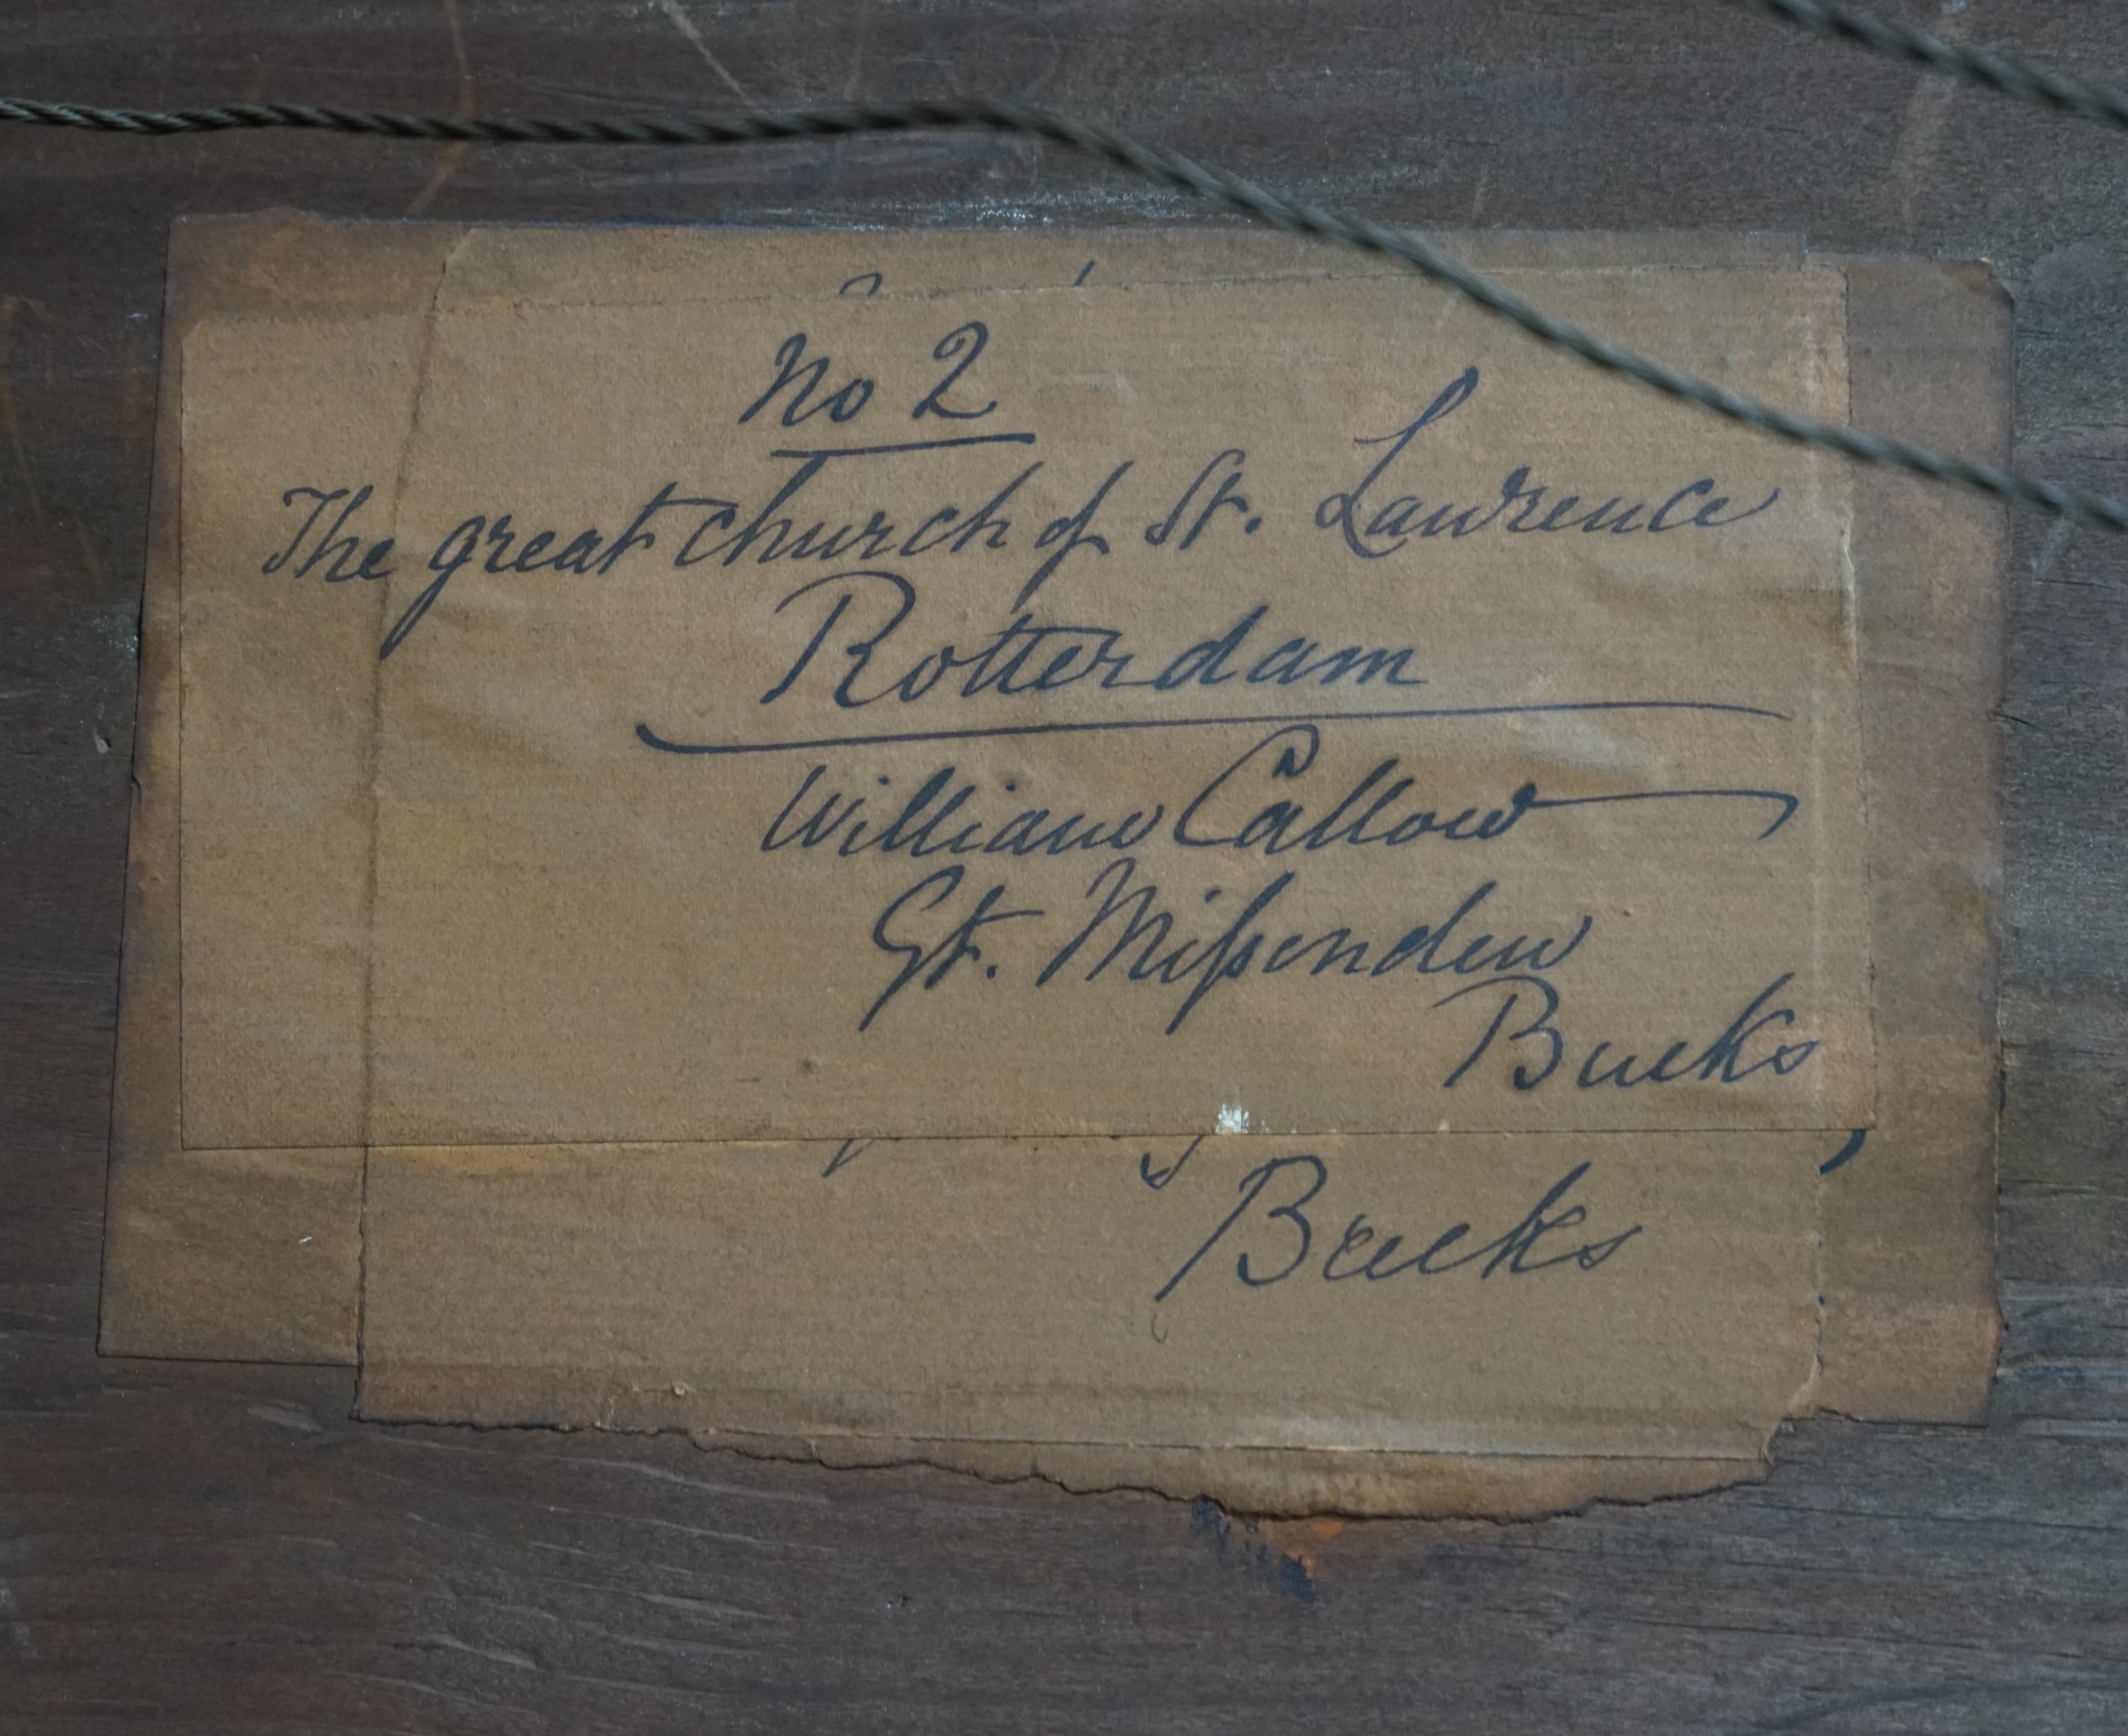 No 2
The great church of St. Lawrence
Rotterdam
William Callow
Gt. Mißenden
Bucks
Bucks